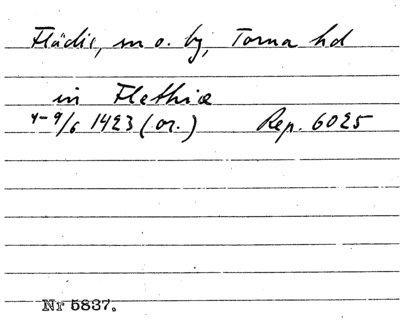 Flädie, sn o. by, Torna hd
in Flethiæ
4-9/6 1423 (or.) Rep. 6025
Nr 5837.